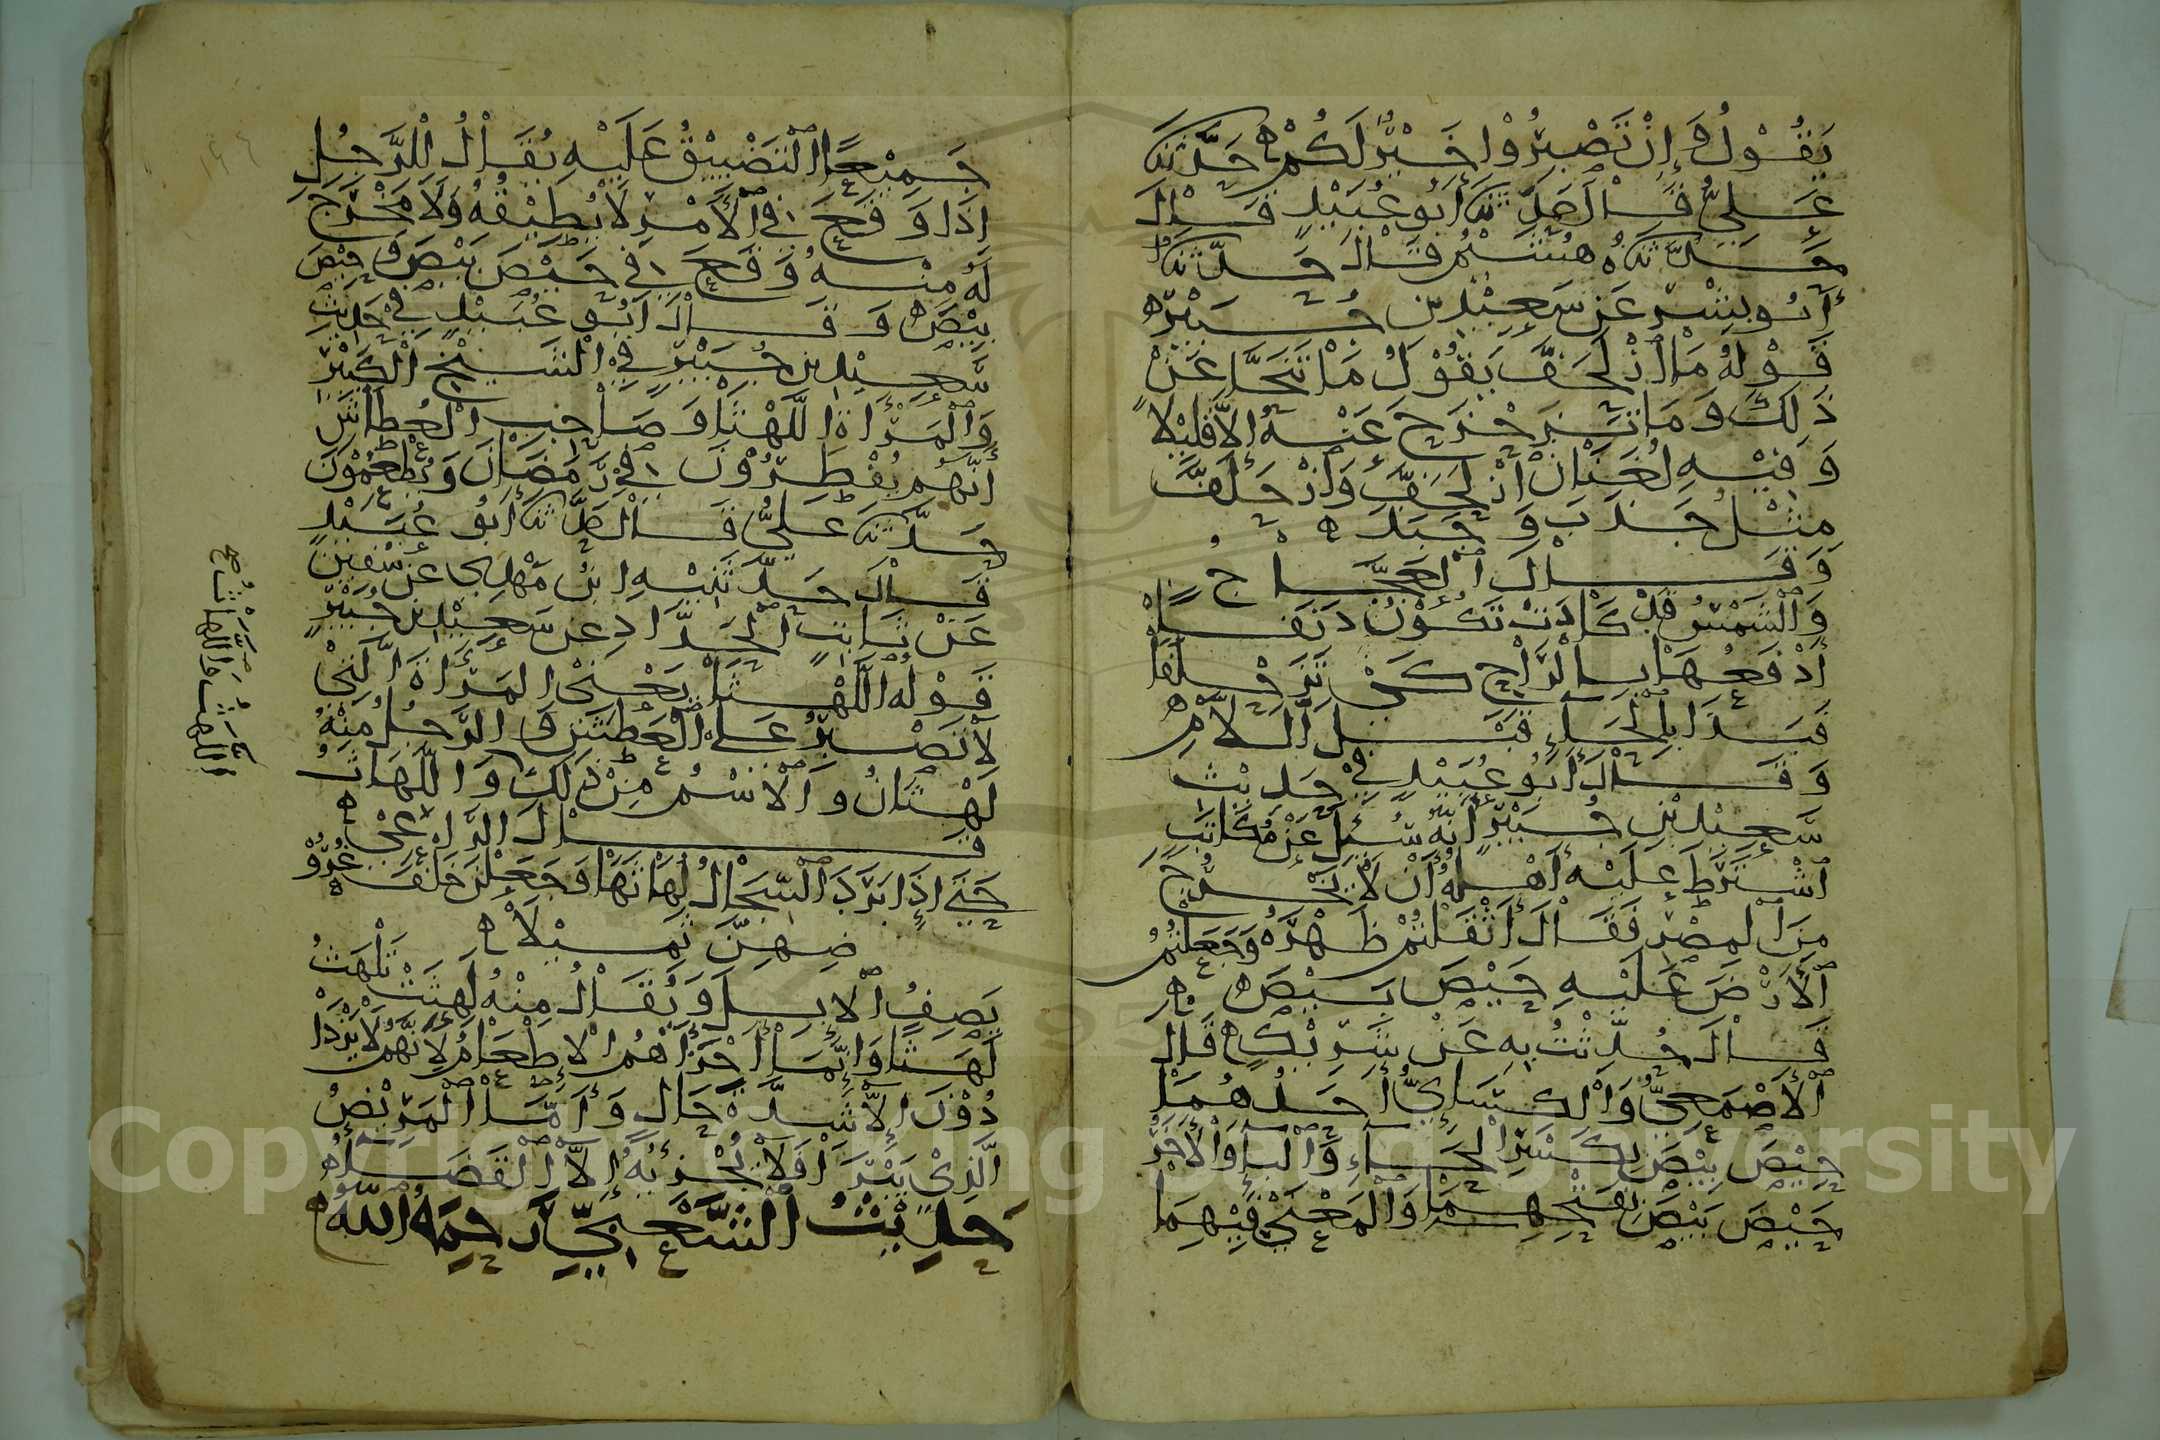 يَقُوْلُ وَ إِنْ تَصْبِرُوْا خَيْرٌ لَكُمْ ه حَدَّثَنَا
عَلِيٌّ قَالَ حَدَّثَنَا أَبُو عُبَيْدٍ قَالَ
حَدَّثَنَاهُ هُشَيْمٌ قَالَ حَدَّثَنَا
أَبُو بِشْرٍ عَنْ سَعِيْدِ بْنِ جُبَيْرٍ ه
قَوْلُهُ مَا ازْلَحَفَّ يَقُوْلُ مَا تَنَحَّا عَنْ
ذَلِكَ وَمَا تَزَحْزَحَ عَنْهُ إِلاَّ قَلِيْلاً
وَفِيْهِ لُغَتَانِ ازْلَحَفَّ وَازْحَلَفَّ
مِثْلُ جَذَبَ وَجَبَذَ ه
وَقَالَ الْعَجَّاجُ
وَالشَّمْسُ قَدْ كَادَتْ تَكُوْنُ دَنَفَا
أَدْفَعُهَا بِالرَّاحِ كَيْ تَزَحْلَفَا
فَبَدَا بِالْحَاءِ قَبْلَ اللاَّمِ ه
وَقَالَ أَبُو عُبَيْدٍ فِيْ حَدِيْثِ
سَعِيْدِ بْنِ جُبَيْرٍ أَنَّهُ سُئِلَ عَنْ مُكَاتَبٍ
اشْتَرَطَ عَلَيْهِ أَهْلُهُ أَنْ لاَ يَخْرُجَ
مِنَ الْمِصْرِ فَقَالَ أَثْقَلْتُمْ ظَهْرَهُ وَجَعَلْتُمُ
الأَرْضَ عَلَيْهِ حَيْصَ بَيْصَ ه
قَالَ حُدِّثْتُ بِهِ عَنْ شَرِيْكٍ ه قَالَ
الأَصْمَعِيُّ وَالْكِسَائِيُّ أَحَدُهُمَا
حِيْصَ بِيْصَ بِكَسْرِ الْحَاءِ وَالْبَاءِ وَالأَخَرُ
حَيْصَ بَيْصَ بِفَتْحِهِمَا وَالْمَعْنَى فِيْهِمَا
جَمِيْعًا التَّضْيِيْقُ عَلَيْهِ يُقَالُ لِلرَّجُلِ
إِذَا وَقَعَ فِي الأَمْرِ لاَ يُطِيْقُهُ وَلاَ مَخْرَجَ
لَهُ مِنْهُ وَقَعَ فِي حَيْصَ بَيْصَ وَحِيْصَ
بِيْصَ ه وَقَالَ أَبُو عُبَيْدٍ فِي حَدِيْثِ
سَعِيْدِ بْنِ جُبَيْرٍ فِيْ الشَّيْخِ الْكَبِيْرِ
وَالْمَرْأَةِ اللَّهْثَا وَصَاحِبِ الْعُطَاشِ
أَنَّهُمْ يُفْطِرُوْنَ فِيْ رَمَضَانَ وَيُطْعِمُوْنَ
حَدَّثَنَا عَلِيٌّ قَالَ حَدَّثَنَا أَبُو عُبَيْدٍ
قَالَ حَدَّثَنِيْهِ ابْنُ مَهْدِيٍّ عَنْ سُفْيٰنَ
عَنْ ثَابِتٍ الْحَدَّادِ عَنْ سَعِيْدِ بْنِ جُبَيْرٍ
قَوْلُهُ اللَّهْثَا يَعْنِي الْمَرْأَةَ الَّتِيْ
لاَ تَصْبِرُ عَلَى الْعَطَشِ وَ الرَّجُلُ مِنْهُ
لَهْثَانُ وَالاسْمُ مِنْ ذَلِكَ وَاللُّهَاثُ
قَالَ الرَّاعِيْ ه
حَتَّى إِذَا بَرَدَ السِّجَالُ لُهَاثَهَا وَجَعَلْنَ خَلْفَ غُرُوْ
ضِهِنَّ ثَمِيْلاَ ه
يَصِفُ الإِبِلَ وَيُقَالُ مِنْهُ لَهَثَتْ تَلْهَثُ
لَهَثًا وَإِنَّمَا أَجْزَأَهُمُ الإِطْعَامُ لأَنَّهُمْ لاَ يَزْدَا
دُوْنَ إِلاَّ شِدَّةَ حَالٍ وَأَمَّا الْمَرِيْضُ
الَّذِيْ يَبْرَأُ فَلاَ يُجْزِيْهِ إِلاَّ الْقَضَاءُ ه
حَدِيْثُ الشَّعْبِيِّ رَحِمَهُ اللهُ